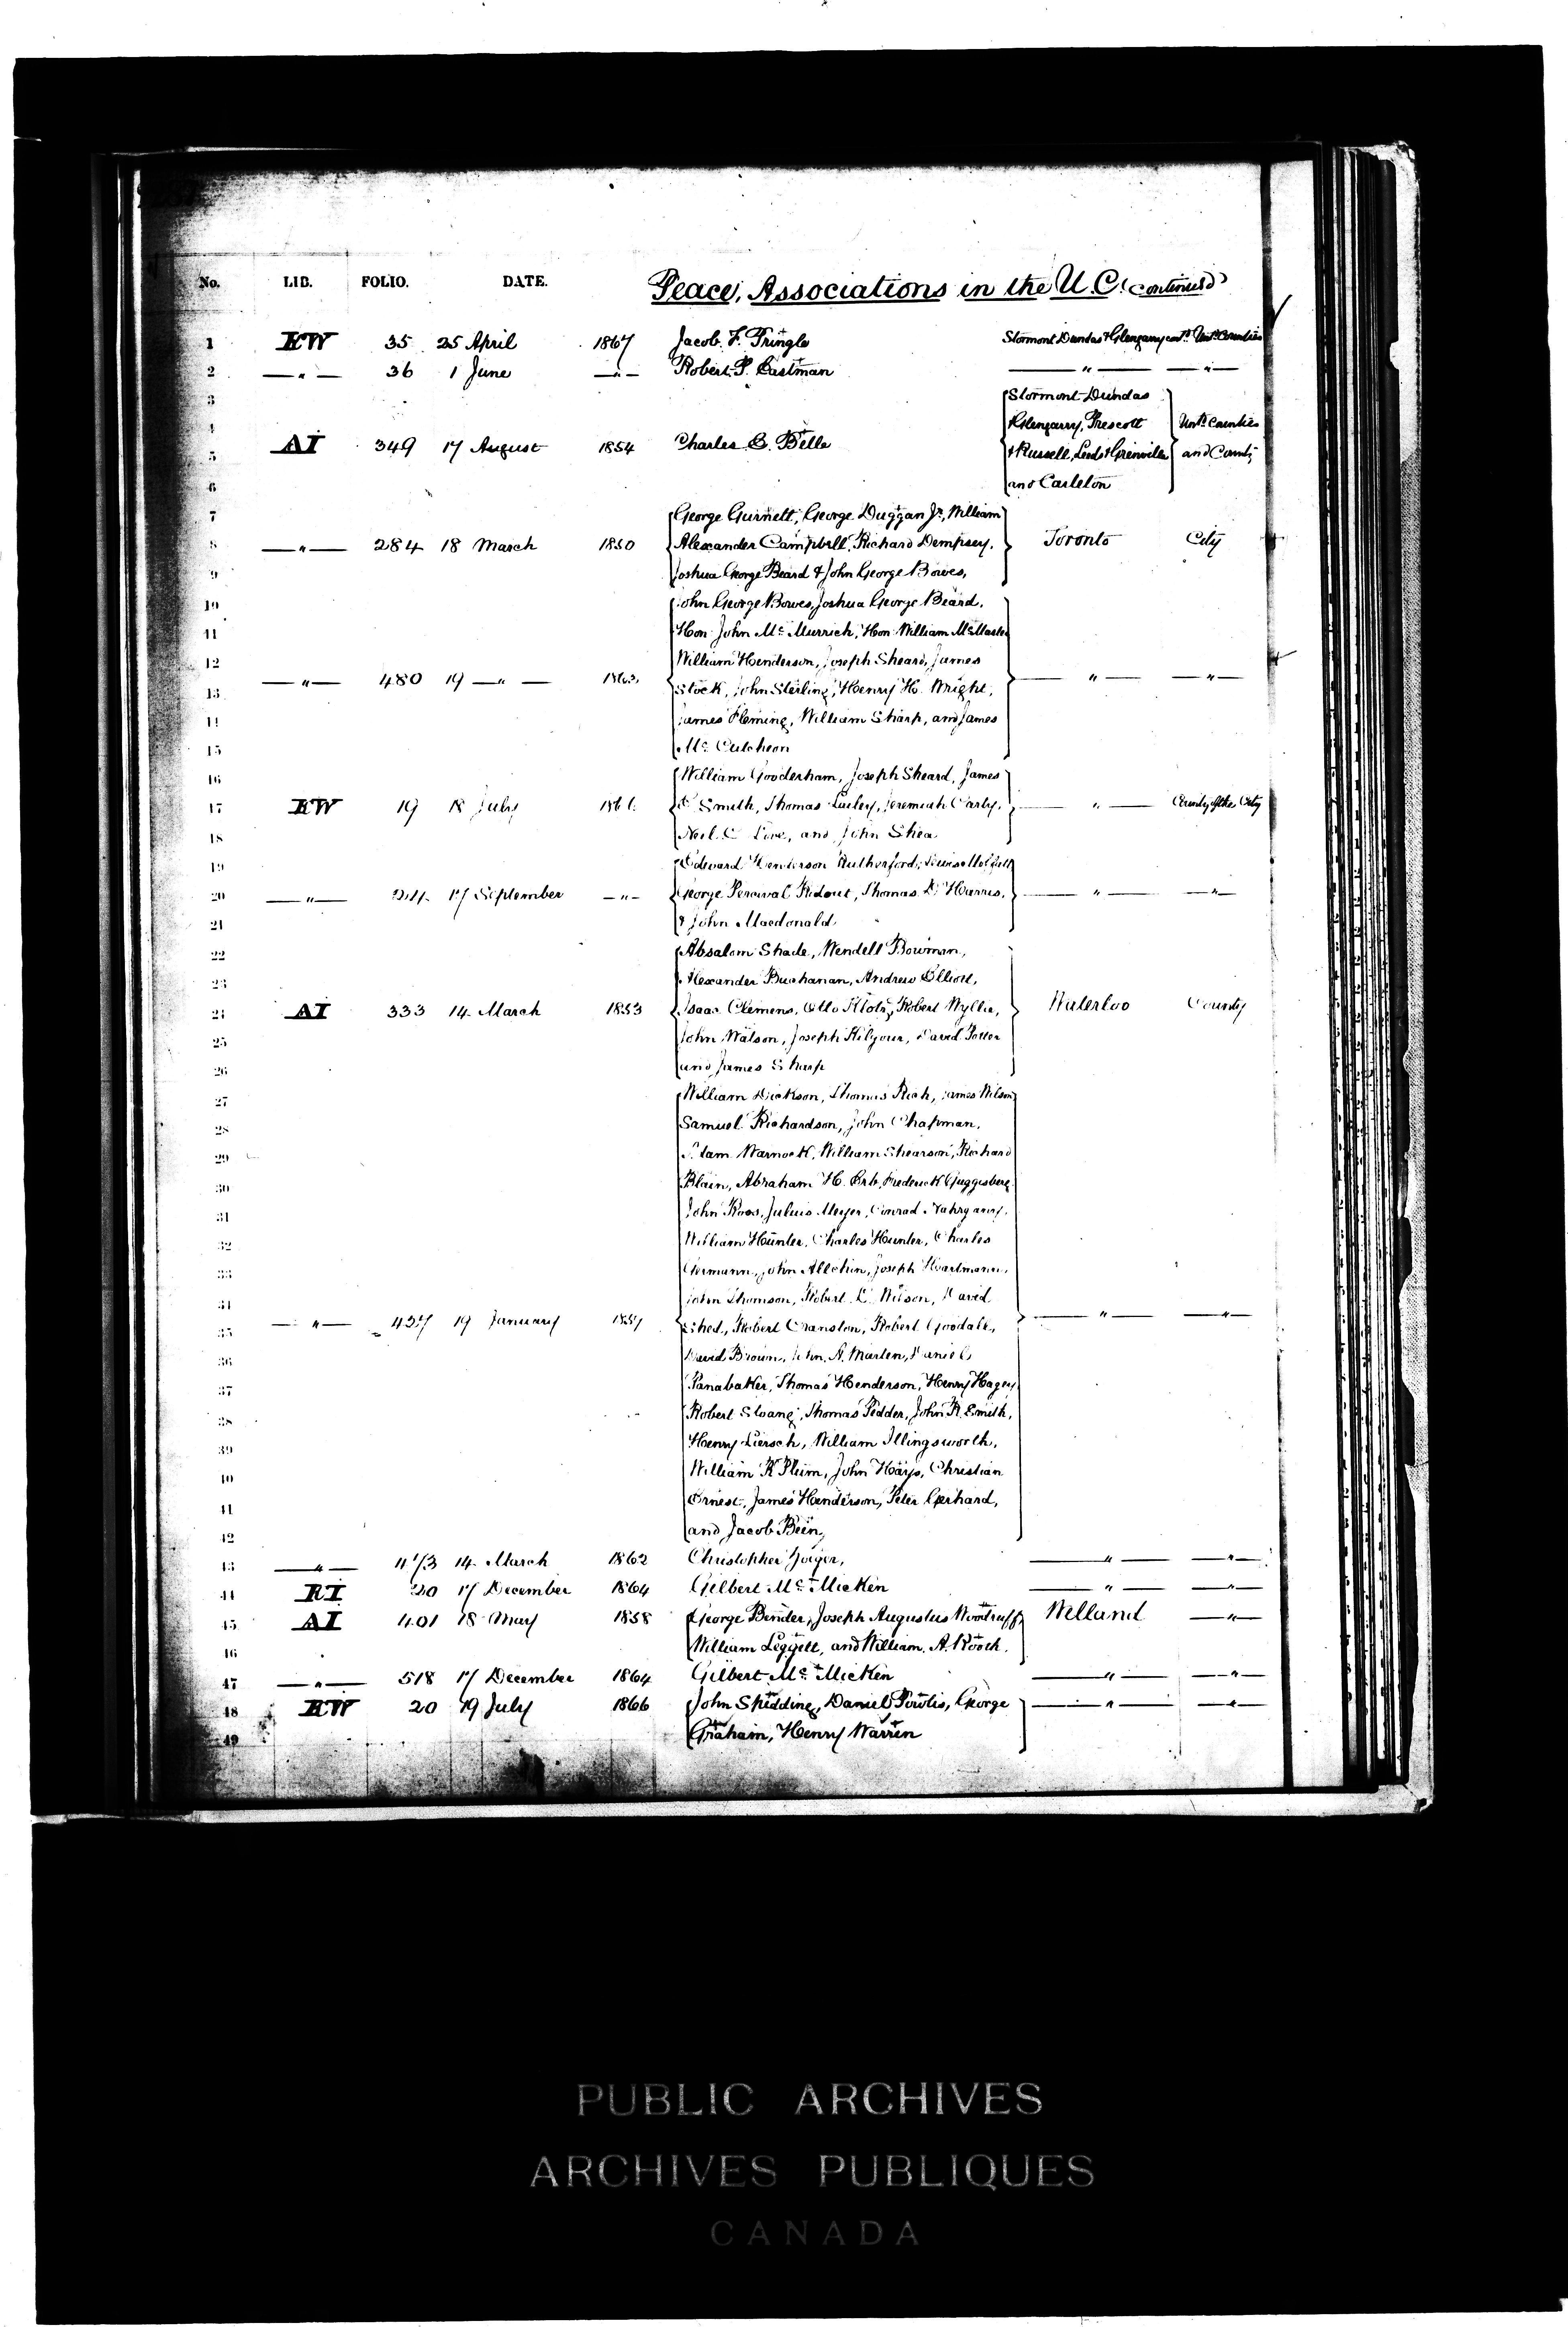 No. LIB. FOLIO. DATE. Peace, Associations in the U.C. (continued)
1 EW 35 25 April 1867 Jacob F. Pringle Stormont Dundas & Glengarry Untd. Counties
2 —"— 36 1 June —"— Robert P. Eastman —"— —"—
3 Stormont Dundas
4 Glengarry, Prescott Untd. Counties
5 AI 349 17 August 1854 Charles E. Belle & Russell, Leeds & Grenville and County
6 and Carleton
7 George Gurnett, George Duggan Jr., William
8 —"— 284 18 March 1850 Alexander Campbell, Richard Dempsey, Toronto City
9 Joshua George Beard & John George Bowes,
10 John George Bowes, Joshua George Beard,
11 Hon. John Mc Murrich, Hon William Mc Master
12 William Henderson, Joseph Sheard, James
13 —"— 480 19 —"— 1863 Stock, John Sterling, Henry H. Wright, —"— —"—
14 James Fleming, William Sharp, and James
15 Mc Cutcheon
16 William Gooderham, Joseph Sheard, James
17 EW 19 18 July 186 Smith, Thomas Jeremiah Carty, —"— County of the City
18 Neil C. Love, and John Shea
19 Edward Henderson Rutherford, Lewis Moffatt
20 —"— 24 17 September —"— George Percival Ridout, Thomas D. Harris, —"— —"—
21 & John Macdonald
22 Absalom Shade, Wendell Bowman,
23 Alexander Buchanan, Andrew Elliott,
24 AI 333 14 March 1853 Isaac Clemens, Otto Klotz, Robert Wyllie, Waterloo County
25 John Watson, Joseph Kilgour, David Potter
26 and James Sharp
27 William Dickson, Thomas Rich, James Wilson
28 Samuel Richardson, John Chapman,
29 Adam Warnock, William Shearson, Richard
30 Blain, Abraham H. Erb, Frederick Guggisberg
31 John Roos, Julius Meyer, Conrad Nahrgang,
32 William Hunter, Charles Hunter, Charles
33 Germann, John Allchin, Joseph Hartmann,
34 John Thomson, Robert Wilson, David
35 —"— 437 19 January 1857 Robert Cranston, Robert Goodall, —"— —"—
36 David Brown, John A. Marten, Daniel
37 Panabaker, Thomas Henderson, Henry Hagey
38 Robert Sloane, Thomas Pedder, John R. Smith,
39 Henry Liersch, William Illingsworth,
40 William K Plum, John Hays, Christian
41 Ernest, James Henderson, Peter Gerhard,
42 and Jacob Been,
43 —"— 473 14 March 1862 Christopher —"— —"—
44 EI 20 17 December 1864 Gilbert Mc Micken —"— —"—
45 AI 401 18 May 1858 George Bender, Joseph Augustus Woodruff Welland —"—
46 William Leggett, and William A. Rooth.
47 —"— 518 17 December 1864 Gilbert Mc Micken —"— —"—
48 EW 20 19 July 1866 John Spedding, Daniel Powlis, George —"— —"—
49 Graham, Henry Warren
PUBLIC ARCHIVES
ARCHIVES PUBLIQUES
CANADA